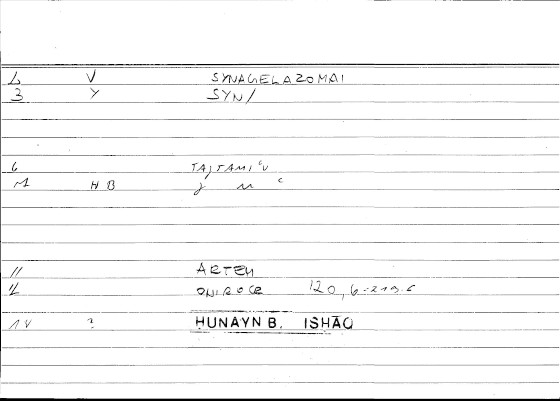 L V SYNAGELAZOMAI
3 Y SYN/
6 TAJTAMIʿU
M HB J M ʿ
11 ARTEM
12 ONIROCR 120, 6-219.6
14 ? HUNAYN B. ISHĀQ